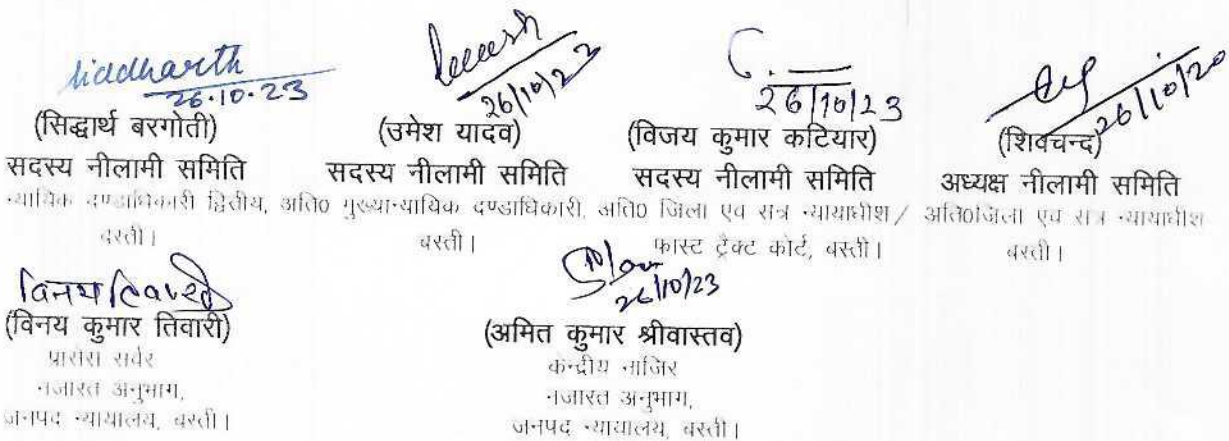 Siddharth
26.10.23
(सिद्धार्थ बरगोती)
सदस्य नीलामी समिति
न्यायिक दण्डाधिकारी द्वितीय,
बस्ती।
Umesh
26/10/23
(उमेश यादव)
सदस्य नीलामी समिति
अति0 मुख्यन्यायिक दण्डाधिकारी,
बस्ती।
26/10/23
(विजय कुमार कटियार)
सदस्य नीलामी समिति
अति0 जिला एव सत्र न्यायाधीश /
फास्ट ट्रैक्ट कोर्ट, बस्ती।
26/10/20
(शिवचन्द)
अध्यक्ष नीलामी समिति
अति0जिला एव सत्र न्यायाधीश
बस्ती।
(विनय कुमार तिवारी)
प्रासेस सर्वर
नजारत अनुभाग,
जनपद न्यायालय, बस्ती।
26/10/23
(अमित कुमार श्रीवास्तव)
केन्द्रीय नाजिर
नजारत अनुभाग,
जनपद न्यायालय, बस्ती।